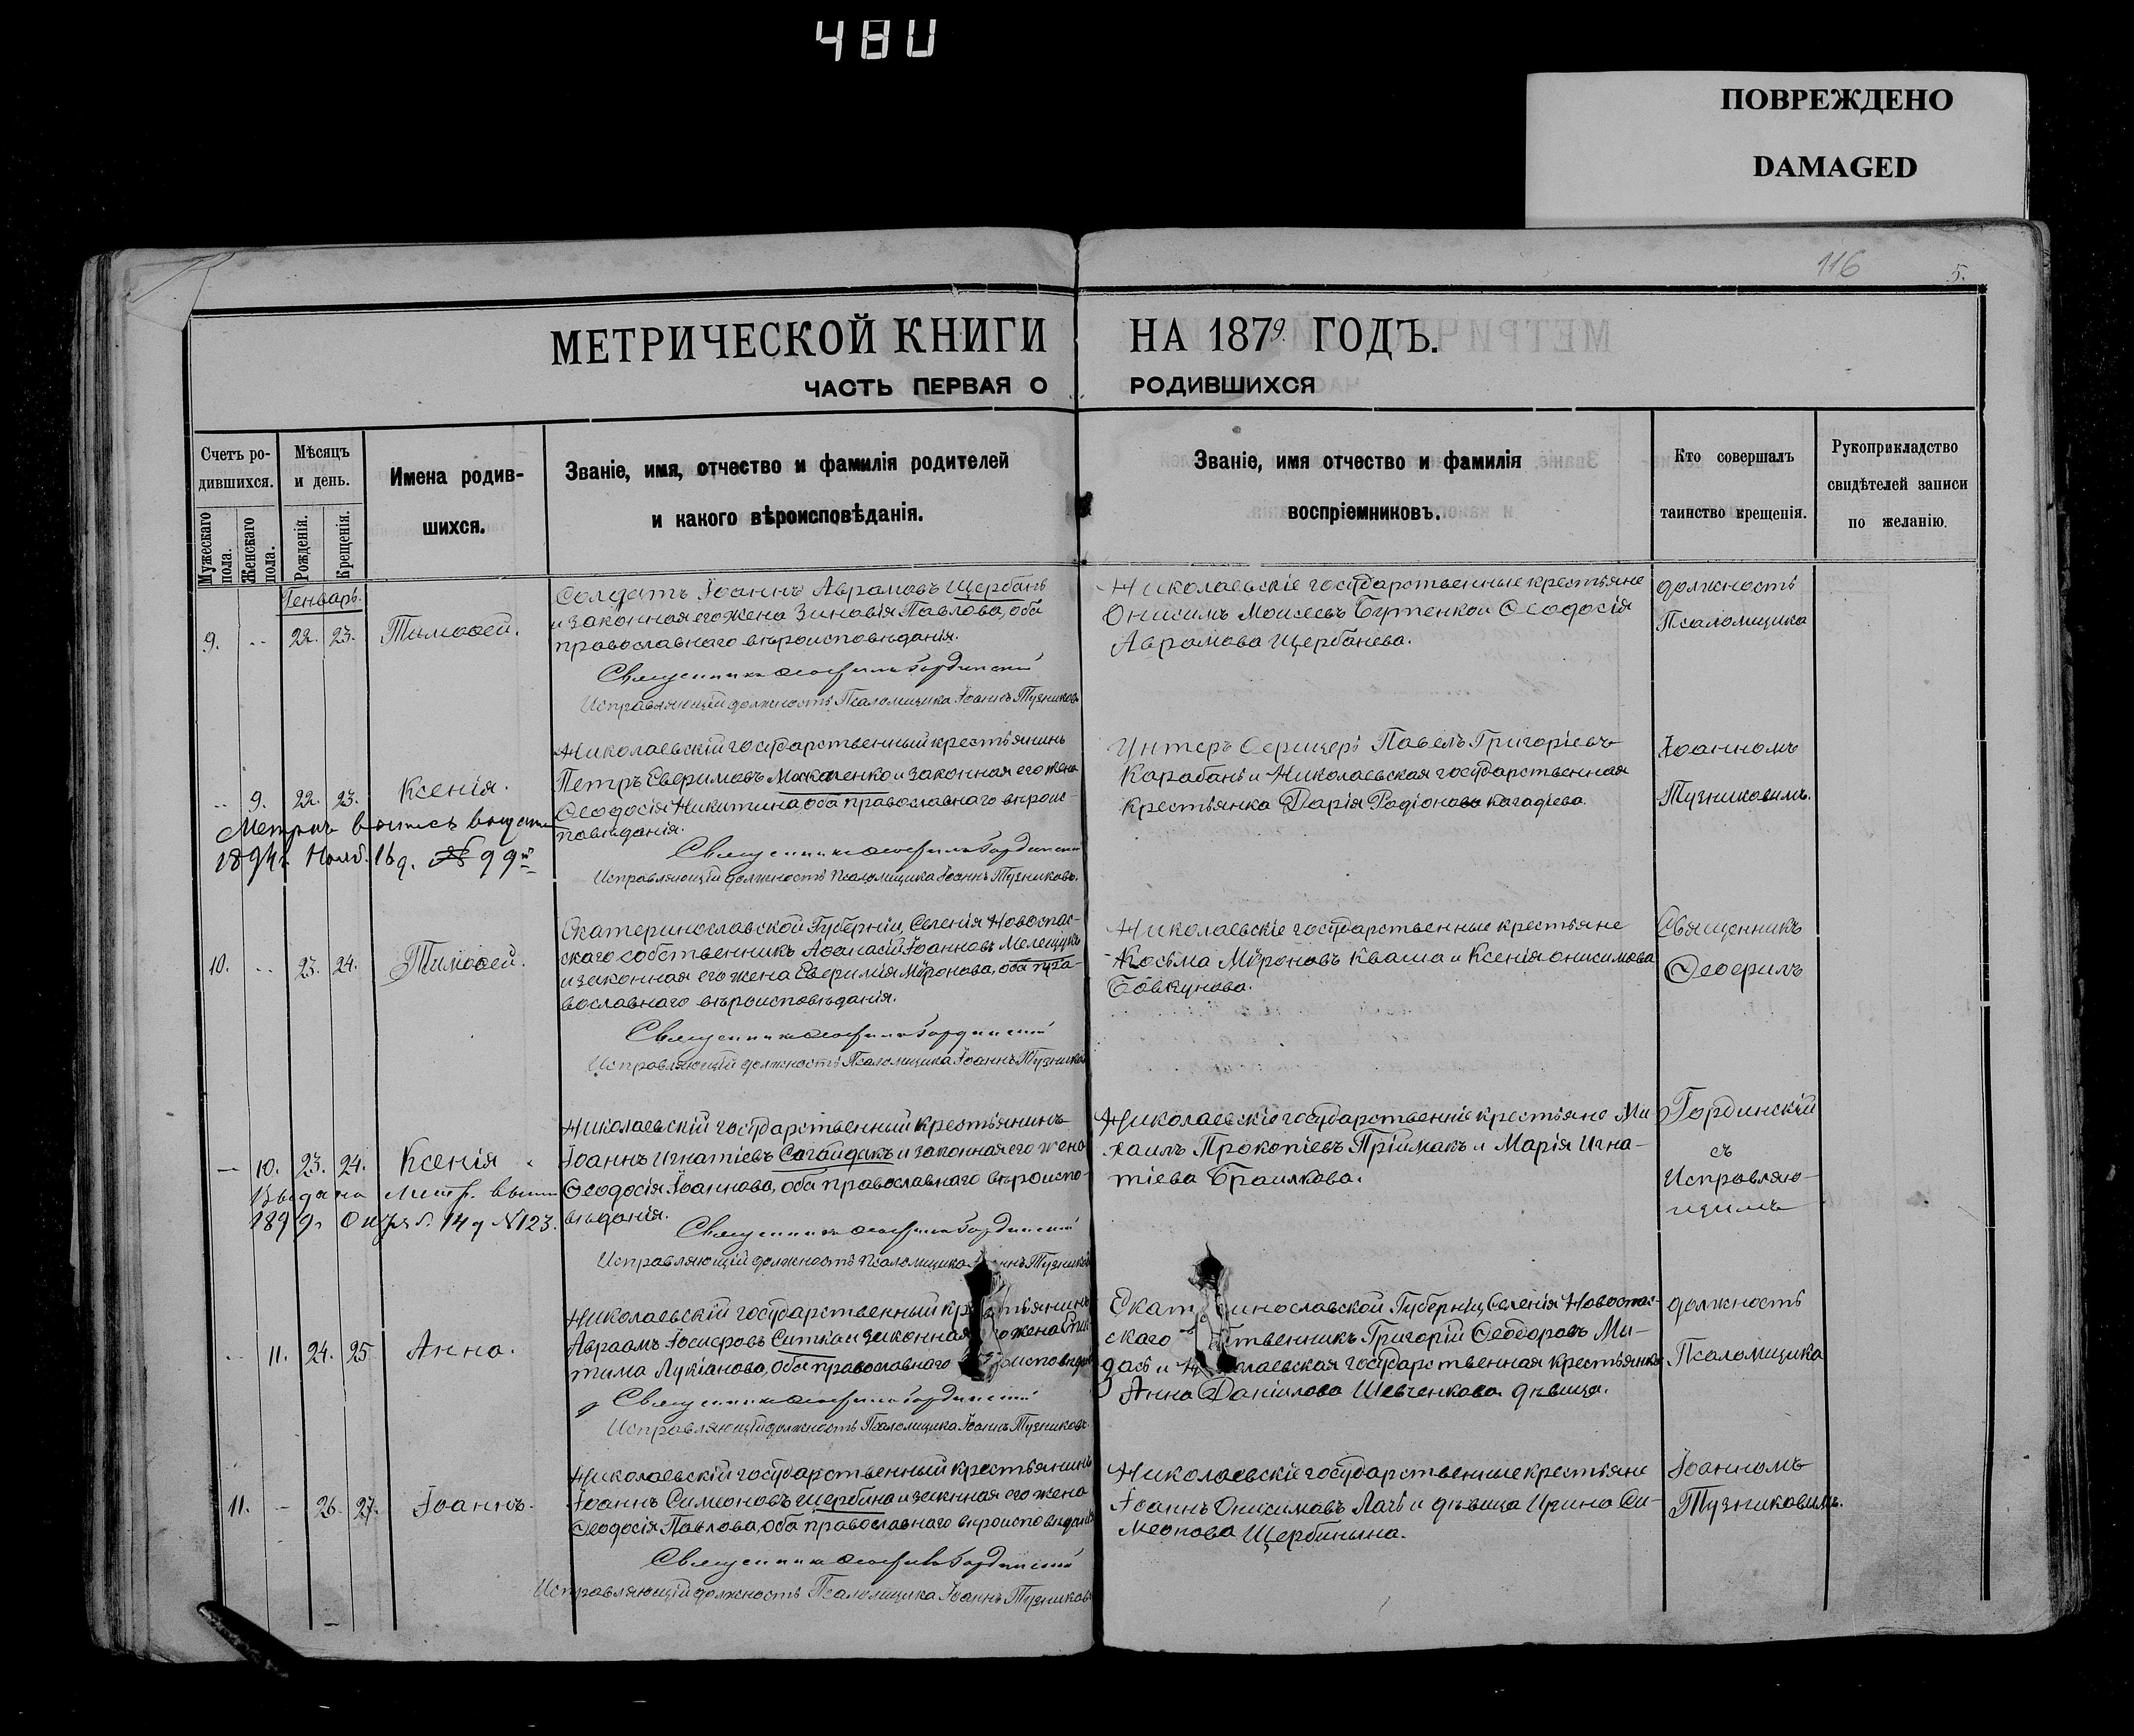 48U
ПОВРЕЖДЕНО
DAMAGED
116
5.
МЕТРИЧЕСКОЙ КНИГИ НА 1879 ГОДЪ.
ЧАСТЬ ПЕРВАЯ О РОДИВШИХСЯ
Счетъ ро-
дившихся.
Мужескаго пола.
Женскаго пола.
Мѣсяцъ
и день.
Рожденія.
Крещенія.
Имена родив-
шихся.
Званіе, имя, отчество и фамилія родителей
и какого вѣроисповѣданія.
Званіе, имя отчество и фамилія
воспріемниковъ.
Кто совершалъ
таинство крещенія.
Рукоприкладство
свидѣтелей записи
по желанію.
Генварь.
9. -- 22. 23. Тимоѳей.
Солдатъ Іоаннъ Аврамовъ Щербань
и законная его жена Зиновія Павлова, оба
православнаго вѣроисповѣданія.
Священникъ Ѳеофилъ Гординскій
Исправляющій должность Псаломщика Іоаннъ Тузниковъ
Николаевскіе государственные крестьяне
Онисимъ Моисеевъ Бутенко и Ѳеодосія
Аврамова Щербанева.
должность
Псаломщика
-- 9. 22. 23. Ксенія.
Николаевскій государственный крестьянинъ
Петръ Евфимовъ Макаренко и законная его жена
Ѳеодосія Никитина, оба православнаго вѣроис-
повѣданія.
Священникъ Ѳеофилъ Гординскій
Исправляющій должность Псаломщика Іоаннъ Тузниковъ.
1894 г. Нояб. 16 д. № 99й
Унтеръ Офицеръ Павелъ Григоріевъ
Карабань и Николаевская государственная
крестьянка Дарія Родіонова
Іоанномъ
Тузниковымъ.
10. -- 23. 24. Тимоѳей.
Екатеринославской Губерніи, Селенія Новоспас-
скаго собственникъ Аѳанасій Іоанновъ Мелещукъ
и законная его жена Евфимія Мѵронова, оба пра-
вославнаго вѣроисповѣданія.
Священникъ Ѳеофилъ Гординскій
Исправляющій должность Псаломщика Іоаннъ Тузниковъ
Николаевскіе государственные крестьяне
Косьма Мѵроновъ Кваша и Ксенія Онисимова
Бовкунова.
Священникъ
Ѳеофилъ
-- 10. 23. 24. Ксенія.
Николаевскій государственный крестьянинъ
Іоаннъ Игнатіевъ Сагайдакъ и законная его жена
Ѳеодосія Іоаннова, оба православнаго вѣроиспо-
вѣданія.
Священникъ Ѳеофилъ Гординскій
Исправляющій должность Псаломщика Тузниковъ
Выдана метр. вып.
1899 г. Октяб. 14 д N123.
Николаевскіе государственніе крестьяне Ми-
хаилъ Прокопіевъ Пріймакъ и Марія Игна-
тіева Браилкова.
Гординскій
съ
Исправляю-
щимъ
-- 11. 24. 25 Анна.
Николаевскій государственный крестьянинъ
Авраамъ Іосифовъ Ситка и законная его жена
Лукіанова, оба православнаго вѣроисповѣданія
Священникъ Ѳеофилъ Гординскій
Исправляющій должность Псаломщика Іоаннъ Тузниковъ
Екатеринославской Губерніи, Селенія Новоспас-
скаго собственникъ Григорій Ѳеодоровъ Ми-
дась и Николаевская государственная крестьянка
Анна Даніилова Шевченкова дѣвица.
должность
Псаломщика
11. -- 26. 27. Іоаннъ.
Николаевскій государственный крестьянинъ
Іоаннъ Симеоновъ Щербина и законная его жена
Ѳеодосія Павлова, оба православнаго вѣроисповѣданія
Священникъ Ѳеофилъ Гординскій
Исправляющій должность Псаломщика Іоаннъ Тузниковъ
Николаевскіе государственные крестьяне
Іоаннъ Онисимовъ Лачь и дѣвица Ирина Си-
меонова Щербинина.
Іоанномъ
Тузниковымъ.